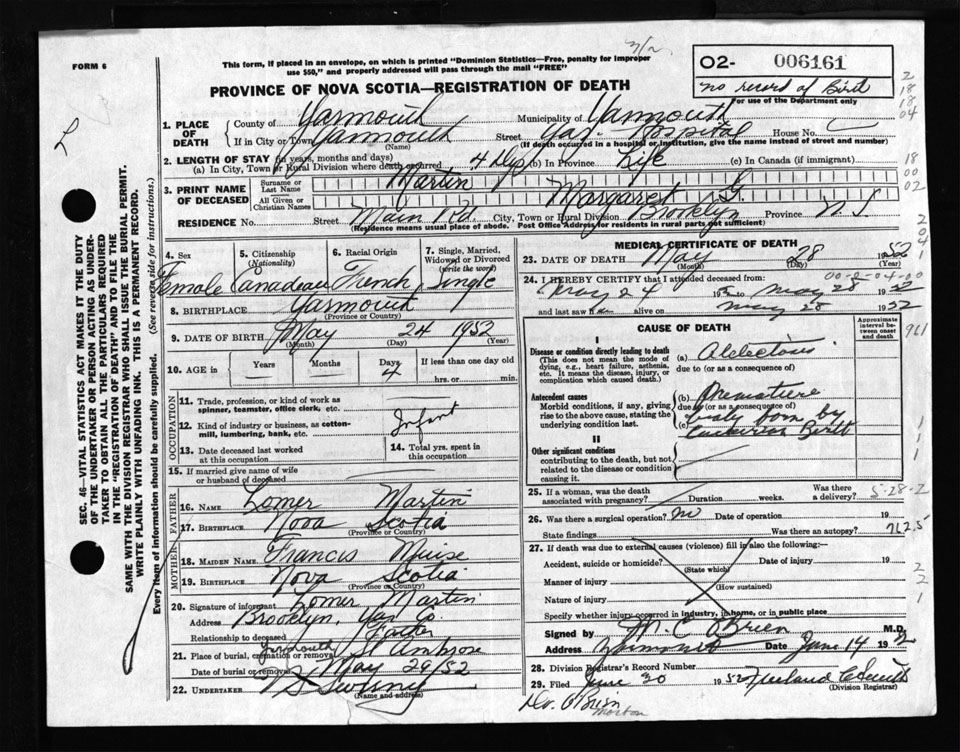 3/2
FORM 6
This form, if placed in an envelope, on which is printed "Dominion Statistics—Free, penalty for improper
use $50," and properly addressed will pass through the mail "FREE"
02- 006161
no record of Birth
For use of the Department only
PROVINCE OF NOVA SCOTIA—REGISTRATION OF DEATH
L
SEC. 46—VITAL STATISTICS ACT MAKES IT THE DUTY
OF THE UNDERTAKER OR PERSON ACTING AS UNDER-
TAKER TO OBTAIN ALL THE PARTICULARS REQUIRED
IN THE "REGISTRATION OF DEATH" AND TO FILE THE
SAME WITH THE DIVISION REGISTRAR WHO SHALL ISSUE THE BURIAL PERMIT.
WRITE PLAINLY WITH UNFADING INK. THIS IS A PERMANENT RECORD.
Every item of information should be carefully supplied. (See reverse side for instructions.)
1. PLACE OF DEATH
County of Yarmouth Municipality of Yarmouth
If in City or Town Yarmouth (Name) Street Yar. Hospital House No.
(If death occurred in a hospital or institution, give the name instead of street and number)
2. LENGTH OF STAY (in years, months and days)
(a) In City, Town or Rural Division where death occurred 4 Dys (b) In Province Life (c) In Canada (if immigrant)
3. PRINT NAME OF DECEASED
Surname or Last Name Martin
All Given or Christian Names Margaret G.
RESIDENCE No. Street Main Rd. City, Town or Rural Division Brooklyn Province N S
(Residence means usual place of abode. Post Office Address for residents in rural parts not sufficient)
4. Sex Female
5. Citizenship (Nationality) Canadian
6. Racial Origin French
7. Single, Married, Widowed or Divorced (write the word) Single
8. BIRTHPLACE Yarmouth
(Province or Country)
9. DATE OF BIRTH May 24 1952
(Month) (Day) (Year)
10. AGE in Years Months Days 4 If less than one day old hrs. or min.
OCCUPATION
11. Trade, profession, or kind of work as spinner, teamster, office clerk, etc.
12. Kind of industry or business, as cotton-mill, lumbering, bank, etc. Infant
13. Date deceased last worked at this occupation
14. Total yrs. spent in this occupation
15. If married give name of wife or husband of deceased
FATHER
16. NAME Lomer Martin
17. BIRTHPLACE Nova Scotia
(Province or Country)
MOTHER
18. MAIDEN NAME Francis Muise
19. BIRTHPLACE Nova Scotia
(Province or Country)
20. Signature of informant Lomer Martin
Address Brooklyn, Yar Co.
Relationship to deceased Father
21. Place of burial, cremation or removal Yarmouth St Ambrose
Date of burial or removal May 29/52
22. UNDERTAKER Sweeny
(Name and address)
MEDICAL CERTIFICATE OF DEATH
23. DATE OF DEATH May 28 1952
(Month) (Day) (Year)
00-0-04-00
24. I HEREBY CERTIFY that I attended deceased from:
May 24 1952 to May 28 1952
and last saw alive on May 28 1952
CAUSE OF DEATH
Approximate interval between onset and death
I
Disease or condition directly leading to death
(This does not mean the mode of dying, e.g., heart failure, asthenia, etc. It means the disease, injury, or complication which caused death.)
(a) Atelectasis
due to (or as a consequence of)
Antecedent causes
Morbid conditions, if any, giving rise to the above cause, stating the underlying condition last.
(b) Premature
due to (or as a consequence of)
(c) baby born by
Caesarian Birth
II
Other significant conditions
contributing to the death, but not related to the disease or condition causing it.
25. If a woman, was the death associated with pregnancy? Duration weeks. Was there a delivery? 5-28-2
26. Was there a surgical operation? no Date of operation 19
State findings Was there an autopsy? 762.5
27. If death was due to external causes (violence) fill in also the following:—
Accident, suicide or homicide? (State which) Date of injury 19
Manner of injury (How sustained)
Nature of injury
Specify whether injury occurred in industry, in home, or in public place
Signed by M. C. O'Brien M.D.
Address Yarmouth Date June 14 1952
28. Division Registrar's Record Number
29. Filed June 30 1952
(Division Registrar)
Dr. O'Brien
Morton